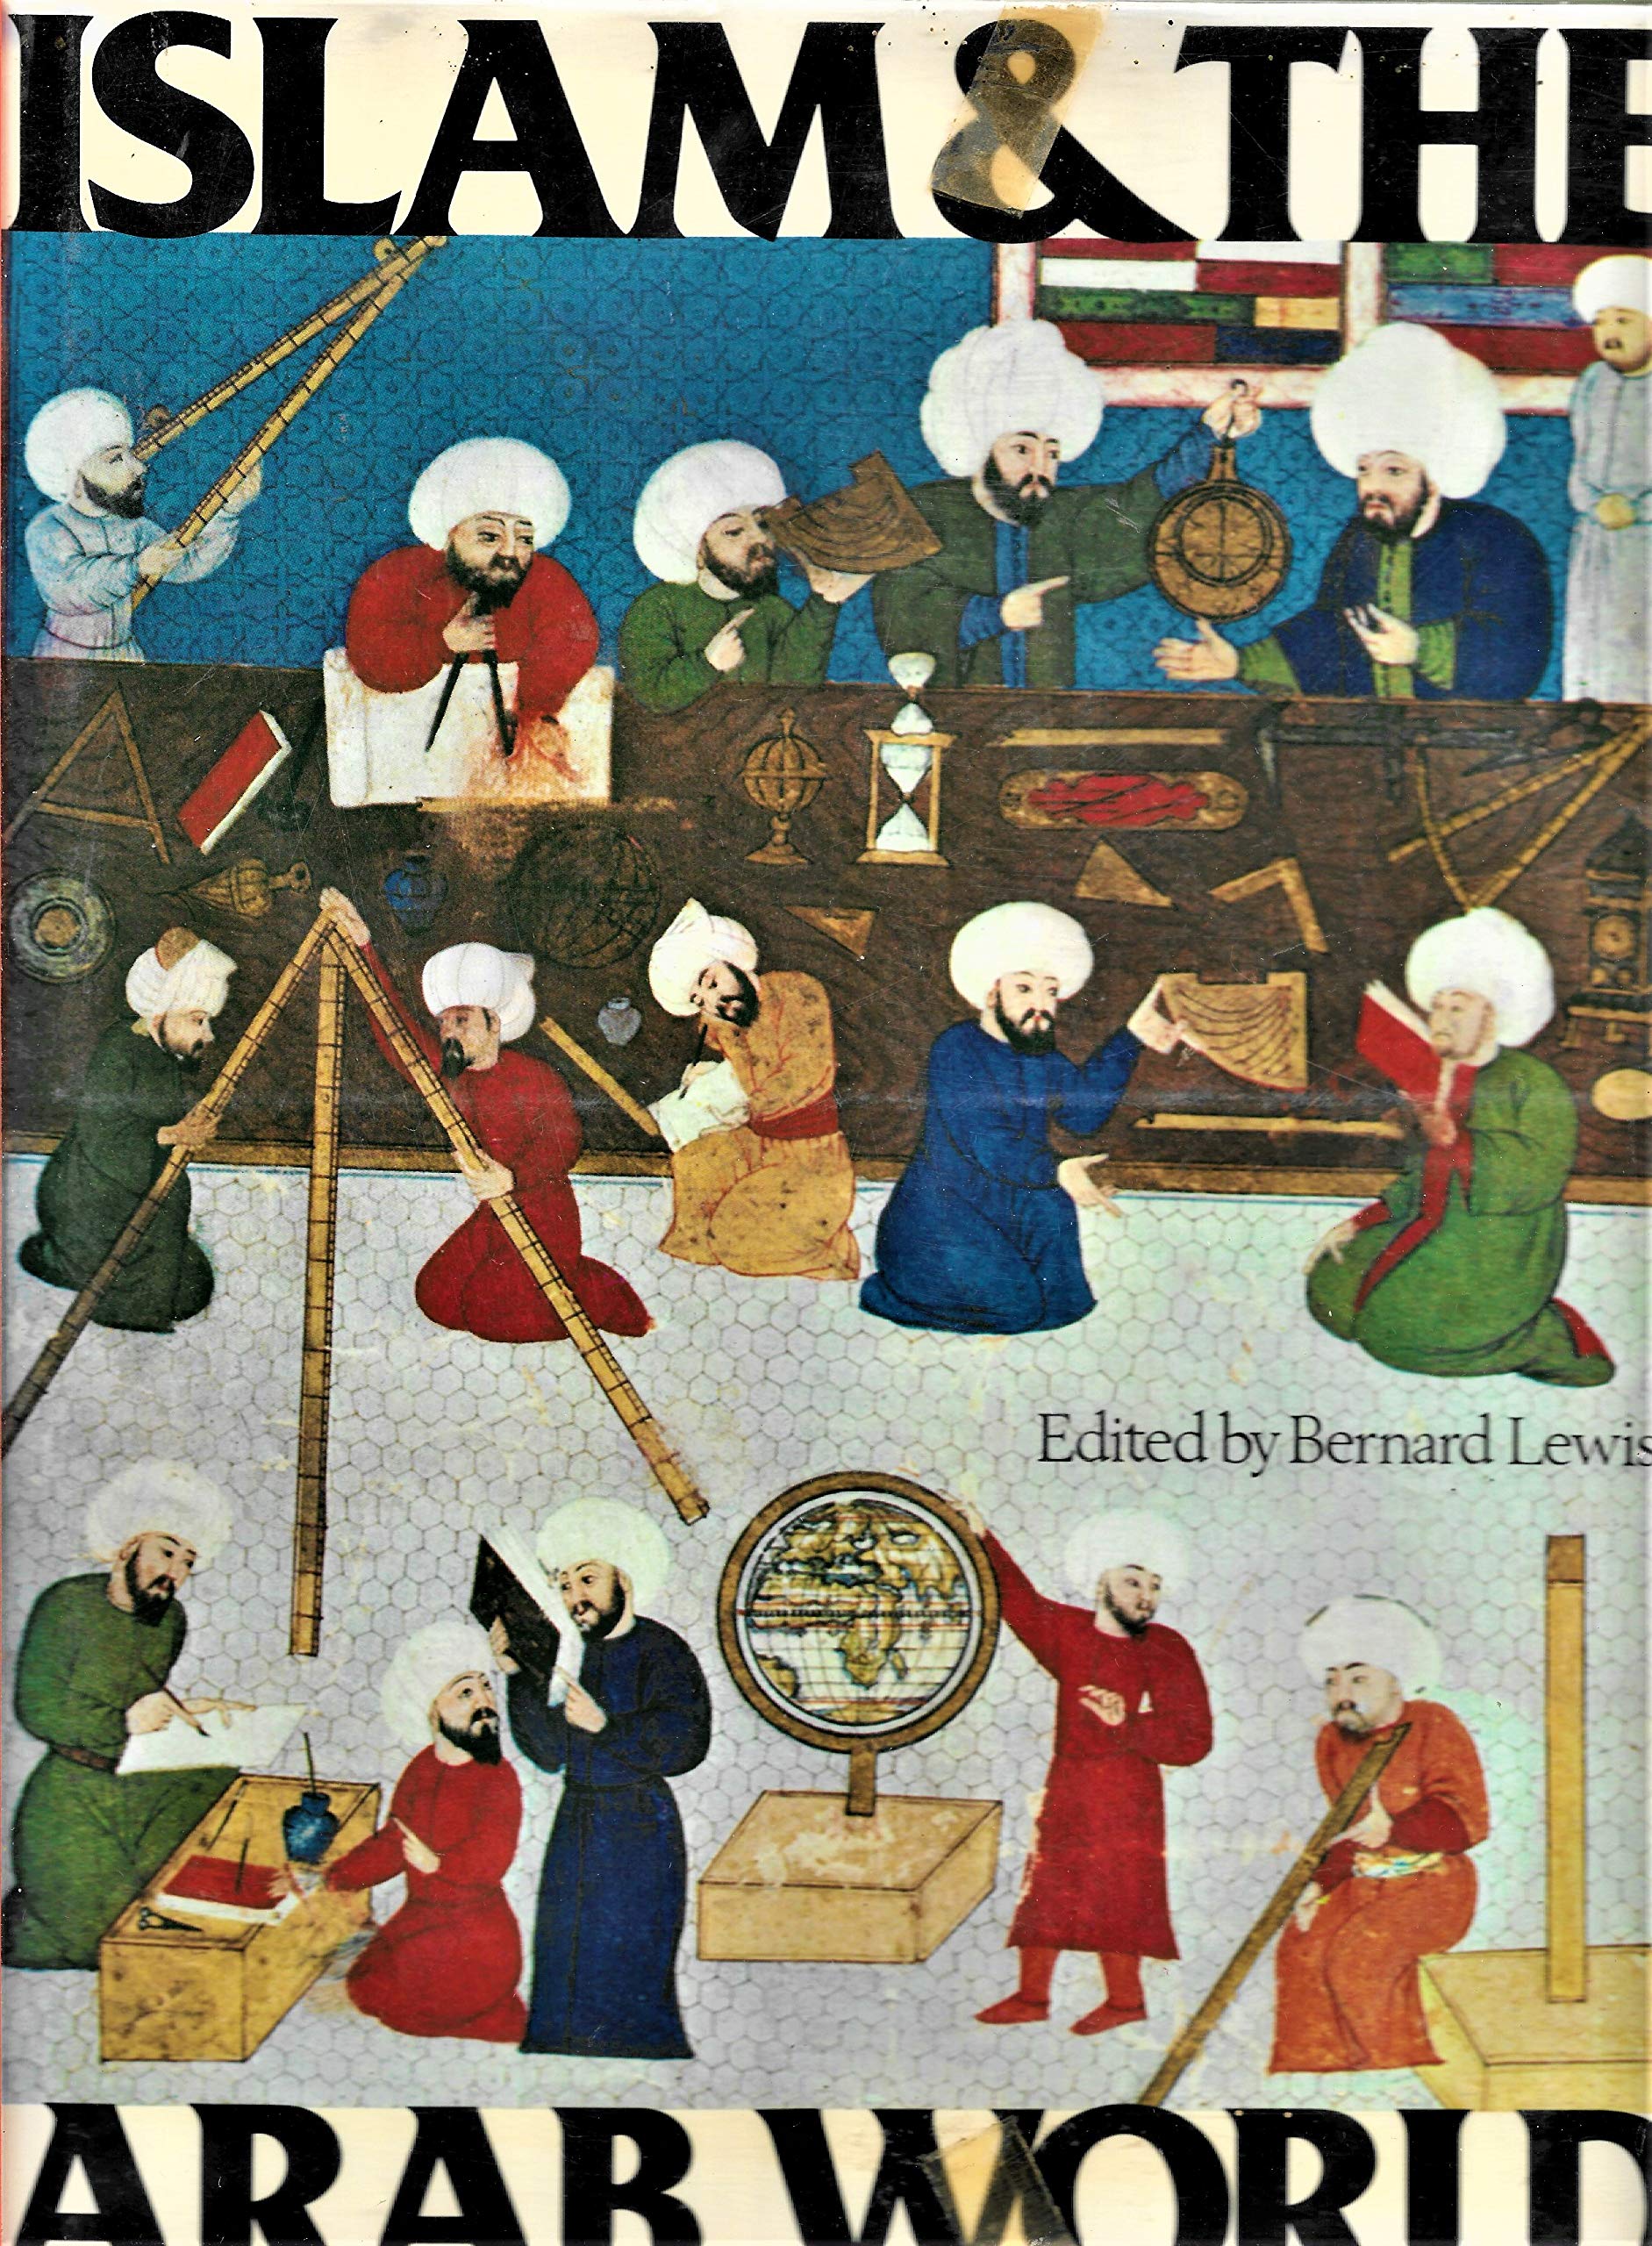 ISLAM & THE
Edited by Bernard Lewis
ARAB WORLD